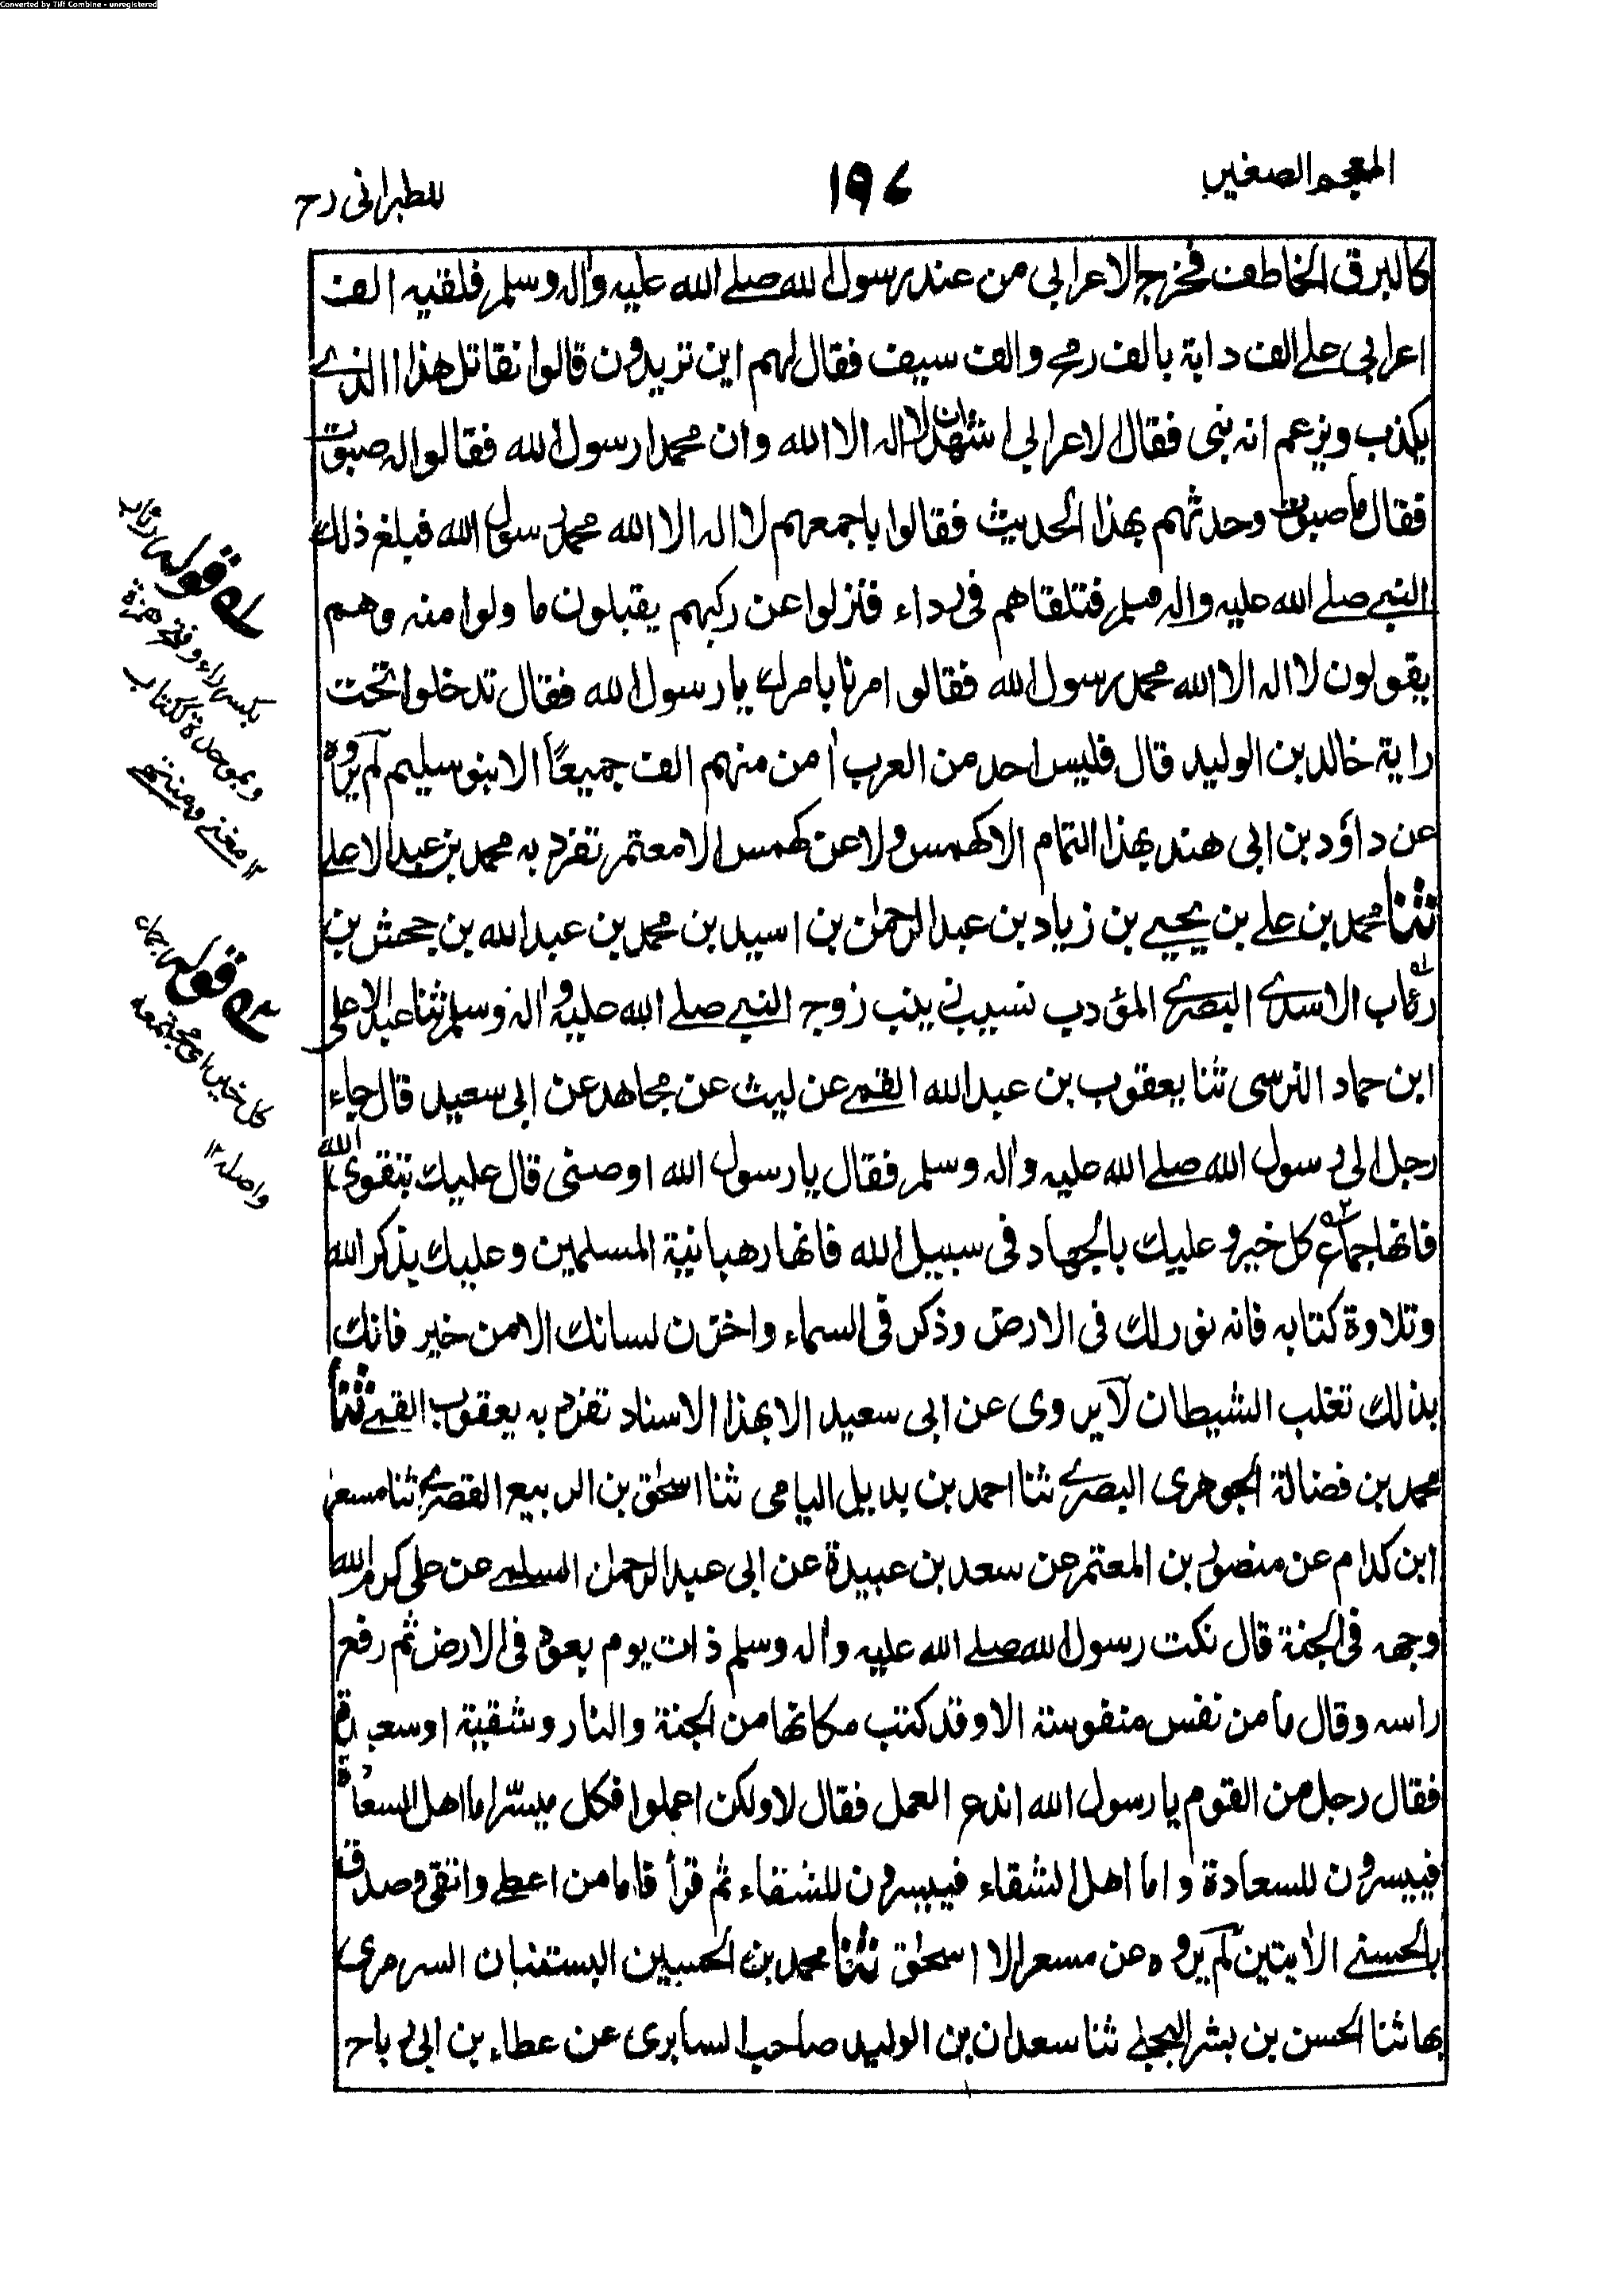 Converted by Tiff Combine - unregistered
المعجم الصغير
١٩٧
للطبرانى رح
كالبرق الخاطف فخرج الاعرابى من عند رسول الله صلے الله عليه واٰله وسلم فلقيه الف
اعرابى علے الف دابة بالف رمح والف سيف فقال لهم اين تريدون قالوا نقاتل هذا الذے
يكذب ويزعم انه نبى فقال الاعرابى اشهد ان لا اله الا الله وان محمدا رسول الله فقالوا له صبوت
فقال ما صبوت وحدثهم بهذا الحديث فقالوا باجمعهم لا اله الا الله محمد رسول الله فبلغ ذلك
النبے صلے الله عليه واله وسلم فتلقاهم فى رداء فنزلوا عن ركبهم يقبلون ما ولوا منه وهم
يقولون لا اله الا الله محمد رسول الله فقالوا امرنا بامرك يا رسول الله فقال تدخلوا تحت
راية خالد بن الوليد قال فليس احد من العرب اٰمن منهم الف جميعًا الا بنو سليم لم يروه
عن داؤد بن ابى هند بهذا التمام الا كهمس ولا عن كهمس الا معتمر تفرد به محمد بن عبد الاعلے
ثنا محمد بن علے بن يحيے بن زياد بن عبد الرحمٰن بن اسيد بن محمد بن عبد الله بن جحش بن
رئاب الاسدے البصرے المؤدب نسيب زينب زوج النبے صلے الله عليه واٰله وسلم ثنا عبد الاعلى
ابن حماد النرسى ثنا يعقوب بن عبد الله القمے عن ليث عن مجاهد عن ابى سعيد قال جاء
رجل الى رسول الله صلے الله عليه واٰله وسلم فقال يا رسول الله اوصنى قال عليك بتقوى الله
فانها جماع كل خير و عليك بالجهاد فى سبيل الله فانها رهبانية المسلمين وعليك بذكر الله
وتلاوة كتابه فانه نور لك فى الارض وذكر فى السماء واخزن لسانك الا من خير فانك
بذلك تغلب الشيطان لا يروى عن ابى سعيد الا بهذا الاسناد تفرد به يعقوب القمے ثنا
محمد بن فضالة الجوهرى البصرے ثنا احمد بن بديل اليامى ثنا اسحٰق بن الربيع القصرے ثنا مسعر
ابن كدام عن منصور بن المعتمر عن سعد بن عبيدة عن ابى عبد الرحمٰن السلمے عن على كرم الله
وجهه فى الجنة قال نكت رسول الله صلے الله عليه واٰله وسلم ذات يوم بعود فى الارض ثم رفع
راسه وقال ما من نفس منفوسة الا وقد كتب مكانها من الجنة والنار وشقية اوسعيدة
فقال رجل من القوم يا رسول الله اندع العمل فقال لا ولكن اعملوا فكل ميسّر اما اهل السعادة
فييسرون للسعادة و اما اهل الشقاء فييسرون للشقاء ثم قرأ فاما من اعطے واتقى وصدق
بالحسنے الاٰيتين لم يروه عن مسعر الا اسحٰق ثنا محمد بن الحسين البستنبان السرمرى
بها ثنا الحسن بن بشر البجلے ثنا سعدان بن الوليد صاحب السابرى عن عطاء بن ابى رباح
١ه قوله رئاب
بكسر راء وفتح همزة
وبموحدة ككتاب
١٢ مغنے ومنتهے
٢ه قوله جماع
كل خير اى مجتمعه
واصله ١٢